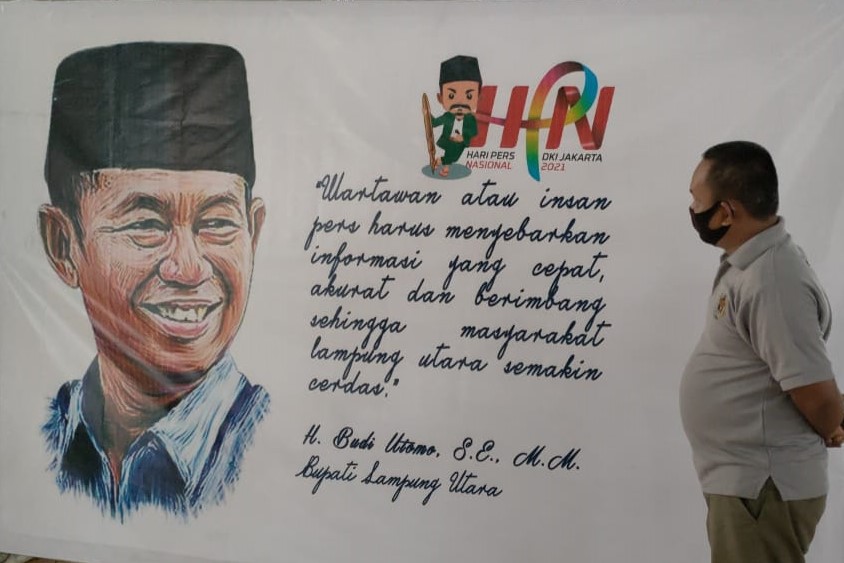 HPN
HARI PERS DKI JAKARTA
NASIONAL 2021
"Wartawan atau insan
pers harus menyebarkan
informasi yang cepat,
akurat dan berimbang
sehingga masyarakat
lampung utara semakin
cerdas."
H. Budi Utomo, S.E., M.M.
Bupati Lampung Utara